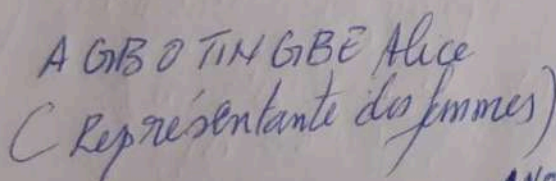 AGBOTINGBE Alice
(Représentante des femmes)